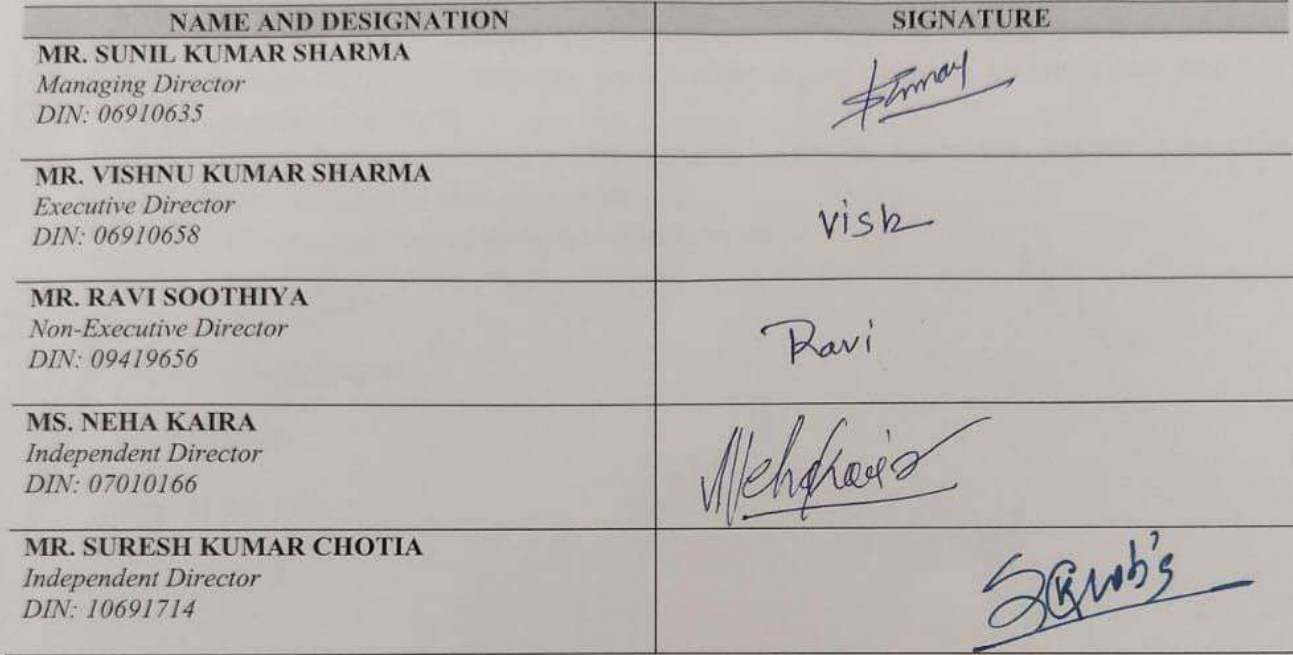 NAME AND DESIGNATION SIGNATURE
MR. SUNIL KUMAR SHARMA
Managing Director
DIN: 06910635
MR. VISHNU KUMAR SHARMA
Executive Director
DIN: 06910658
Vish
MR. RAVI SOOTHIYA
Non-Executive Director
DIN: 09419656
Ravi
MS. NEHA KAIRA
Independent Director
DIN: 07010166
NehaKaira
MR. SURESH KUMAR CHOTIA
Independent Director
DIN: 10691714